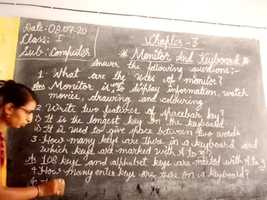 Date-09.07.20
Class: I
Sub: Computer
Chapter-3
* Monitor And Keyboard *
Answer the following questions:-
1. What are the uses of moniter?
Ans Moniter is to display information, watch
movies, drawing and colouring
2. Write two features of spacebar key?
a) It is the longest key on the keyboard
b) It is used to give space between two words
3. How many keys are there in a keyboard and
which keys are marked with A to Z?
A) 108 keys and alphabet keys are marked with A to Z
4. How many enter keys are there on a keyboard?